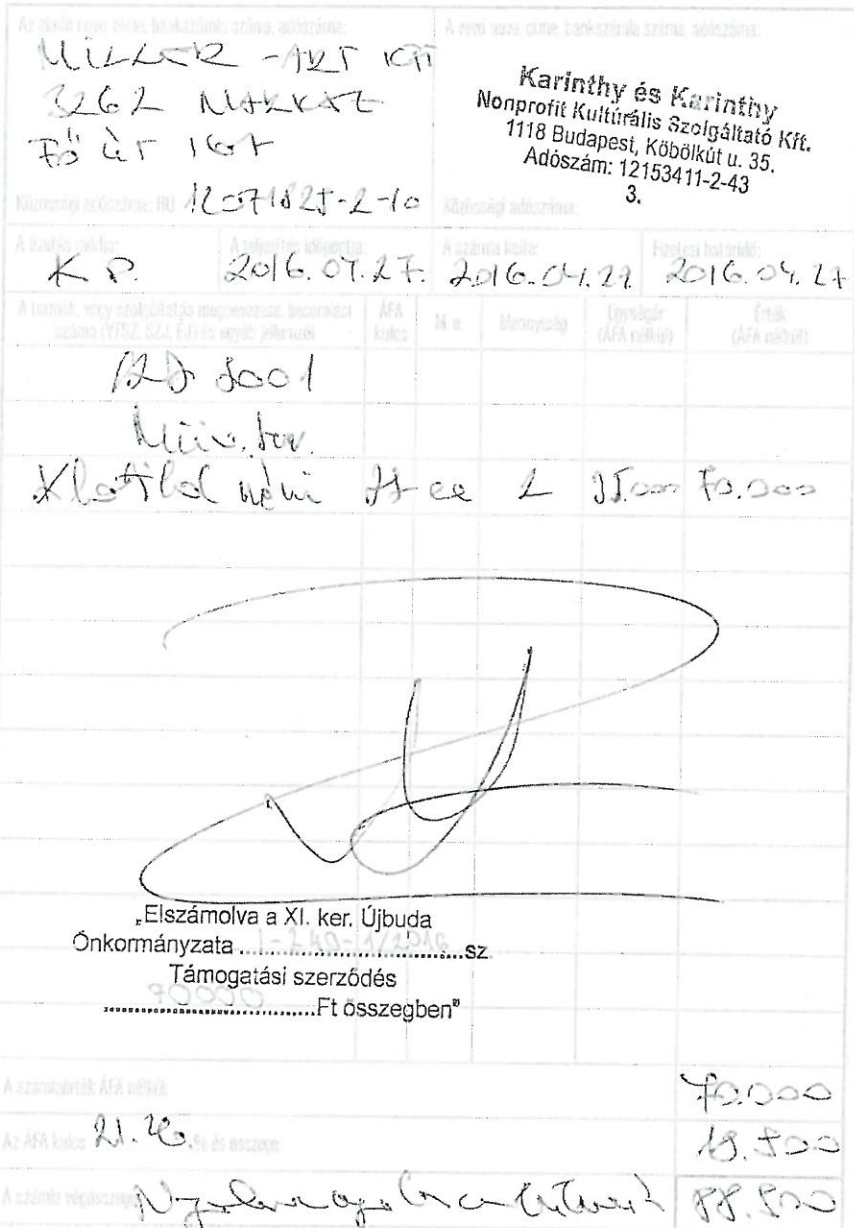 Az eladó neve, címe, bankszámla száma, adószáma:
MILLER-ART KFT
3262 MARKAZ
FŐ ÚT 167
Közösségi adószáma: HU 12071825-2-10
A vevő neve, címe, bankszámla száma, adószáma:
Karinthy és Karinthy
Nonprofit Kultúrális Szolgáltató Kft.
1118 Budapest, Köbölkút u. 35.
Adószám: 12153411-2-43
3.
Közösségi adószáma:
A fizetés módja: A teljesítés időpontja: A számla kelte: Fizetési határidő:
K P. 2016.04.27. 2016.04.27. 2016.04.27
A termék, vagy szolgáltatás megnevezése, besorolási száma (VTSZ, SZJ, ÉJ) és egyéb jellemzői
ÁFA kulcs
M. e.
Mennyiség
Egységár (ÁFA nélkül)
Érték (ÁFA nélkül)
Klotild néni 2 35.000 70.000
„Elszámolva a XI. ker. Újbuda
Önkormányzata I-240-1/2016 sz
Támogatási szerződés
70000 Ft összegben"
A számlaérték ÁFA nélkül: 70.000
Az ÁFA kulcs % és összege:
A számla végösszege: